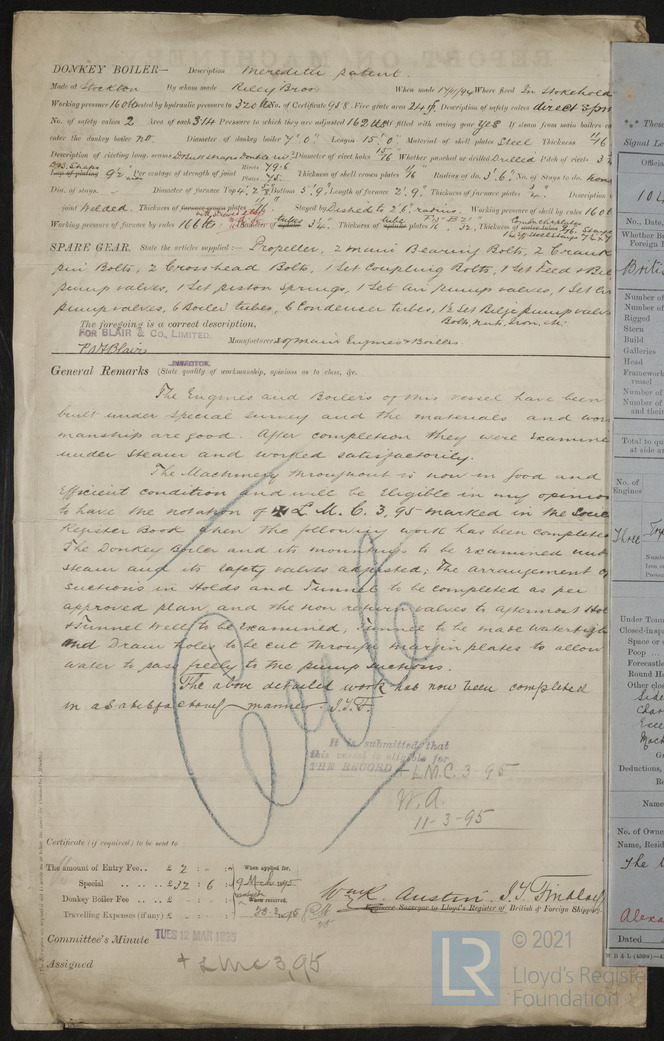 DONKEY BOILER— Description Meredith patent.
Made at Stockton By whom made Riley Bros When made 17/1/94 Where fixed In Stokehold
Working pressure 160 lb tested by hydraulic pressure to 320 lb No. of Certificate 958 Fire grate area Description of safety valves direct spri
No. of safety valves 2 Area of each 3.14 Pressure to which they are adjusted 162 If fitted with easing gear yes If steam from main boilers
enter the donkey boiler no Diameter of donkey boiler 7'0" Length 15'0" Material of shell plates Steel Thickness /16
Description of riveting long. seams Diameter of rivet holes 15/16 Whether punched or drilled Drilled Pitch of rivets 3
Lap of plating 9½ Per centage of strength of joint Rivets 79.6 Thickness of shell crown plates Radius of do. 3'6" No. of Stays to do. none
Plates 75.
Dia. of stays. Diameter of furnace Top Bottom 5'9" Length of furnace 2'9" Thickness of furnace plates Description
joint Welded. Thickness of Stayed by Dished to 2'6" radius. Working pressure of shell by rules 160 lb
Working pressure of furnace by rules 166 lb Diameter of tubes 3¼ Thickness of tube plates Thickness of
SPARE GEAR. State the articles supplied:— Propeller, 2 main Bearing Bolts, 2 Crank
pin Bolts, 2 Crosshead Bolts, 1 Set Coupling Bolts, 1 Set Feed & Bil
pump valves, 1 Set piston springs, 1 Set Air pump valves, 1 Set Cir
pump valves, 6 Boiler tubes, 6 Condenser tubes, ½ Set Bilge pump valv
Bolts, nuts, Iron, etc
The foregoing is a correct description,
FOR BLAIR & Co., LIMITED.
Manufacturer of Main Engines & Boilers
DIRECTOR.
General Remarks (State quality of workmanship, opinions as to class, &c.
The Engines and Boilers of this vessel have been
built under special survey and the materials and wor
manship are good. After completion they were Examine
under steam and worked satisfactorily.
The Machinery throughout is now in good and
Efficient condition and will be Eligible in my opinion
to have the notation of + L.M.C. 3,95 marked in the Socie
Register Book when the following work has been complete
The Donkey Boiler and its mountings to be Examined und
steam and its safety valves adjusted; The arrangement of
suctions in Holds and Tunnel to be completed as per
approved plan and the non return valves to aftermost Hol
& Tunnel Well to be Examined, Tunnel to be made watertigh
and Drain holes to be cut through margin plates to allow
water to pass freely to the pump suctions.
The above detailed work has now been completed
in a satisfactory manner. J.T.F.
It is submitted that
this vessel is eligible for
THE RECORD + L.M.C. 3-95
W.A.
11-3-95
Certificate (if required) to be sent to
The amount of Entry Fee.. £ 2 : - : When applied for,
Special .. .. .. £ 32 : 6 : 9 Mch 1895
Donkey Boiler Fee .. .. £ - : - : When received,
Travelling Expenses (if any) £ - : - :
Wm R. Austin. J. T. Findlay
Engineer Surveyor to Lloyd's Register of British & Foreign Shipping
Committee's Minute TUES 12 MAR 1895
Assigned + LMC 3,95
These
Signal Le
Offici
104
No., Date,
Whether B
Foreign
Britis
Number of
Number of
Rigged
Stern
Build
Galleries
Head
Framework
vessel
Number of
Number of
and thei
Total to qu
at side a
No. of
Engines
Three
Under Tonn
Closed-in sp
Space or
Poop ...
Forecastle
Round Ho
Other clos
Side
Char
Deductions,
Re
No. of Owne
Name, Resid
The
Alexa
Dated
LR
© 2021
Lloyd's Registe
Foundation